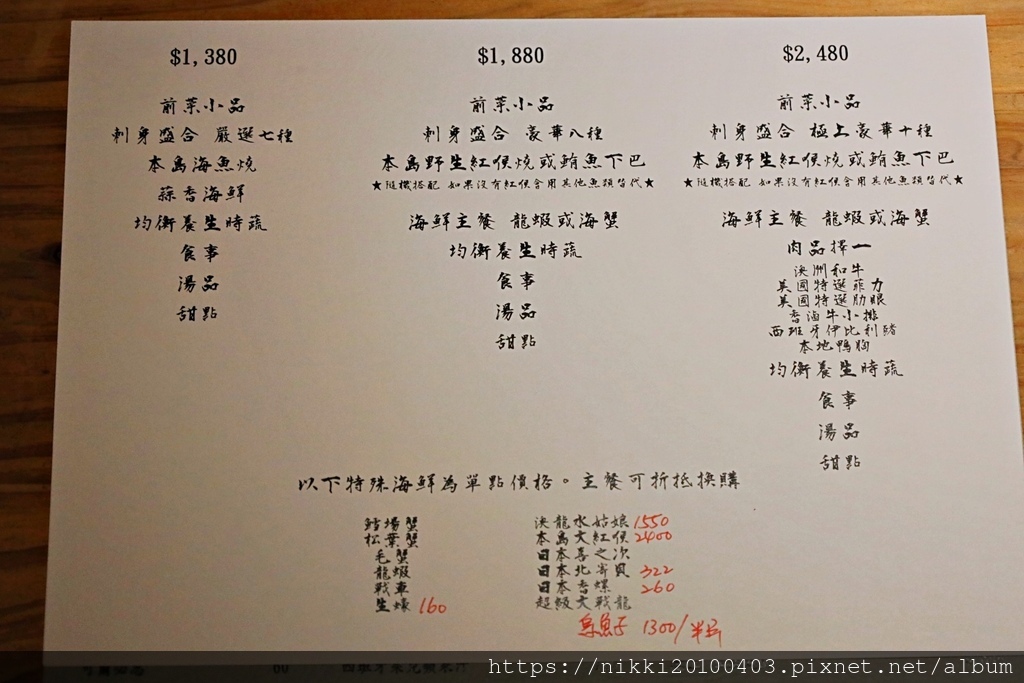 $1,380
前菜小品
刺身盛合 嚴選七種
本島海魚燒
蒜香海鮮
均衡養生時蔬
食事
湯品
甜點
$1,880
前菜小品
刺身盛合 豪華八種
本島野生紅喉燒或鮪魚下巴
★隨機搭配 如果沒有紅喉會用其他魚類替代★
海鮮主餐 龍蝦或海蟹
均衡養生時蔬
食事
湯品
甜點
$2,480
前菜小品
刺身盛合 極上豪華十種
本島野生紅喉燒或鮪魚下巴
★隨機搭配 如果沒有紅喉會用其他魚類替代★
海鮮主餐 龍蝦或海蟹
肉品擇一
澳洲和牛
美國特選菲力
美國特選肋眼
香滷牛小排
西班牙伊比利豬
本地鴨胸
均衡養生時蔬
食事
湯品
甜點
以下特殊海鮮為單點價格。主餐可折抵換購
鱈場蟹
松葉蟹
毛蟹
龍蝦
戰車
生蠔 160
澳龍水姑娘 1550
本島大紅喉 2400
日本喜之次
日本北寄貝 322
日本香螺 260
超級大戰龍
烏魚子 1300/半片
60
https://nikki20100403.pixnet.net/album